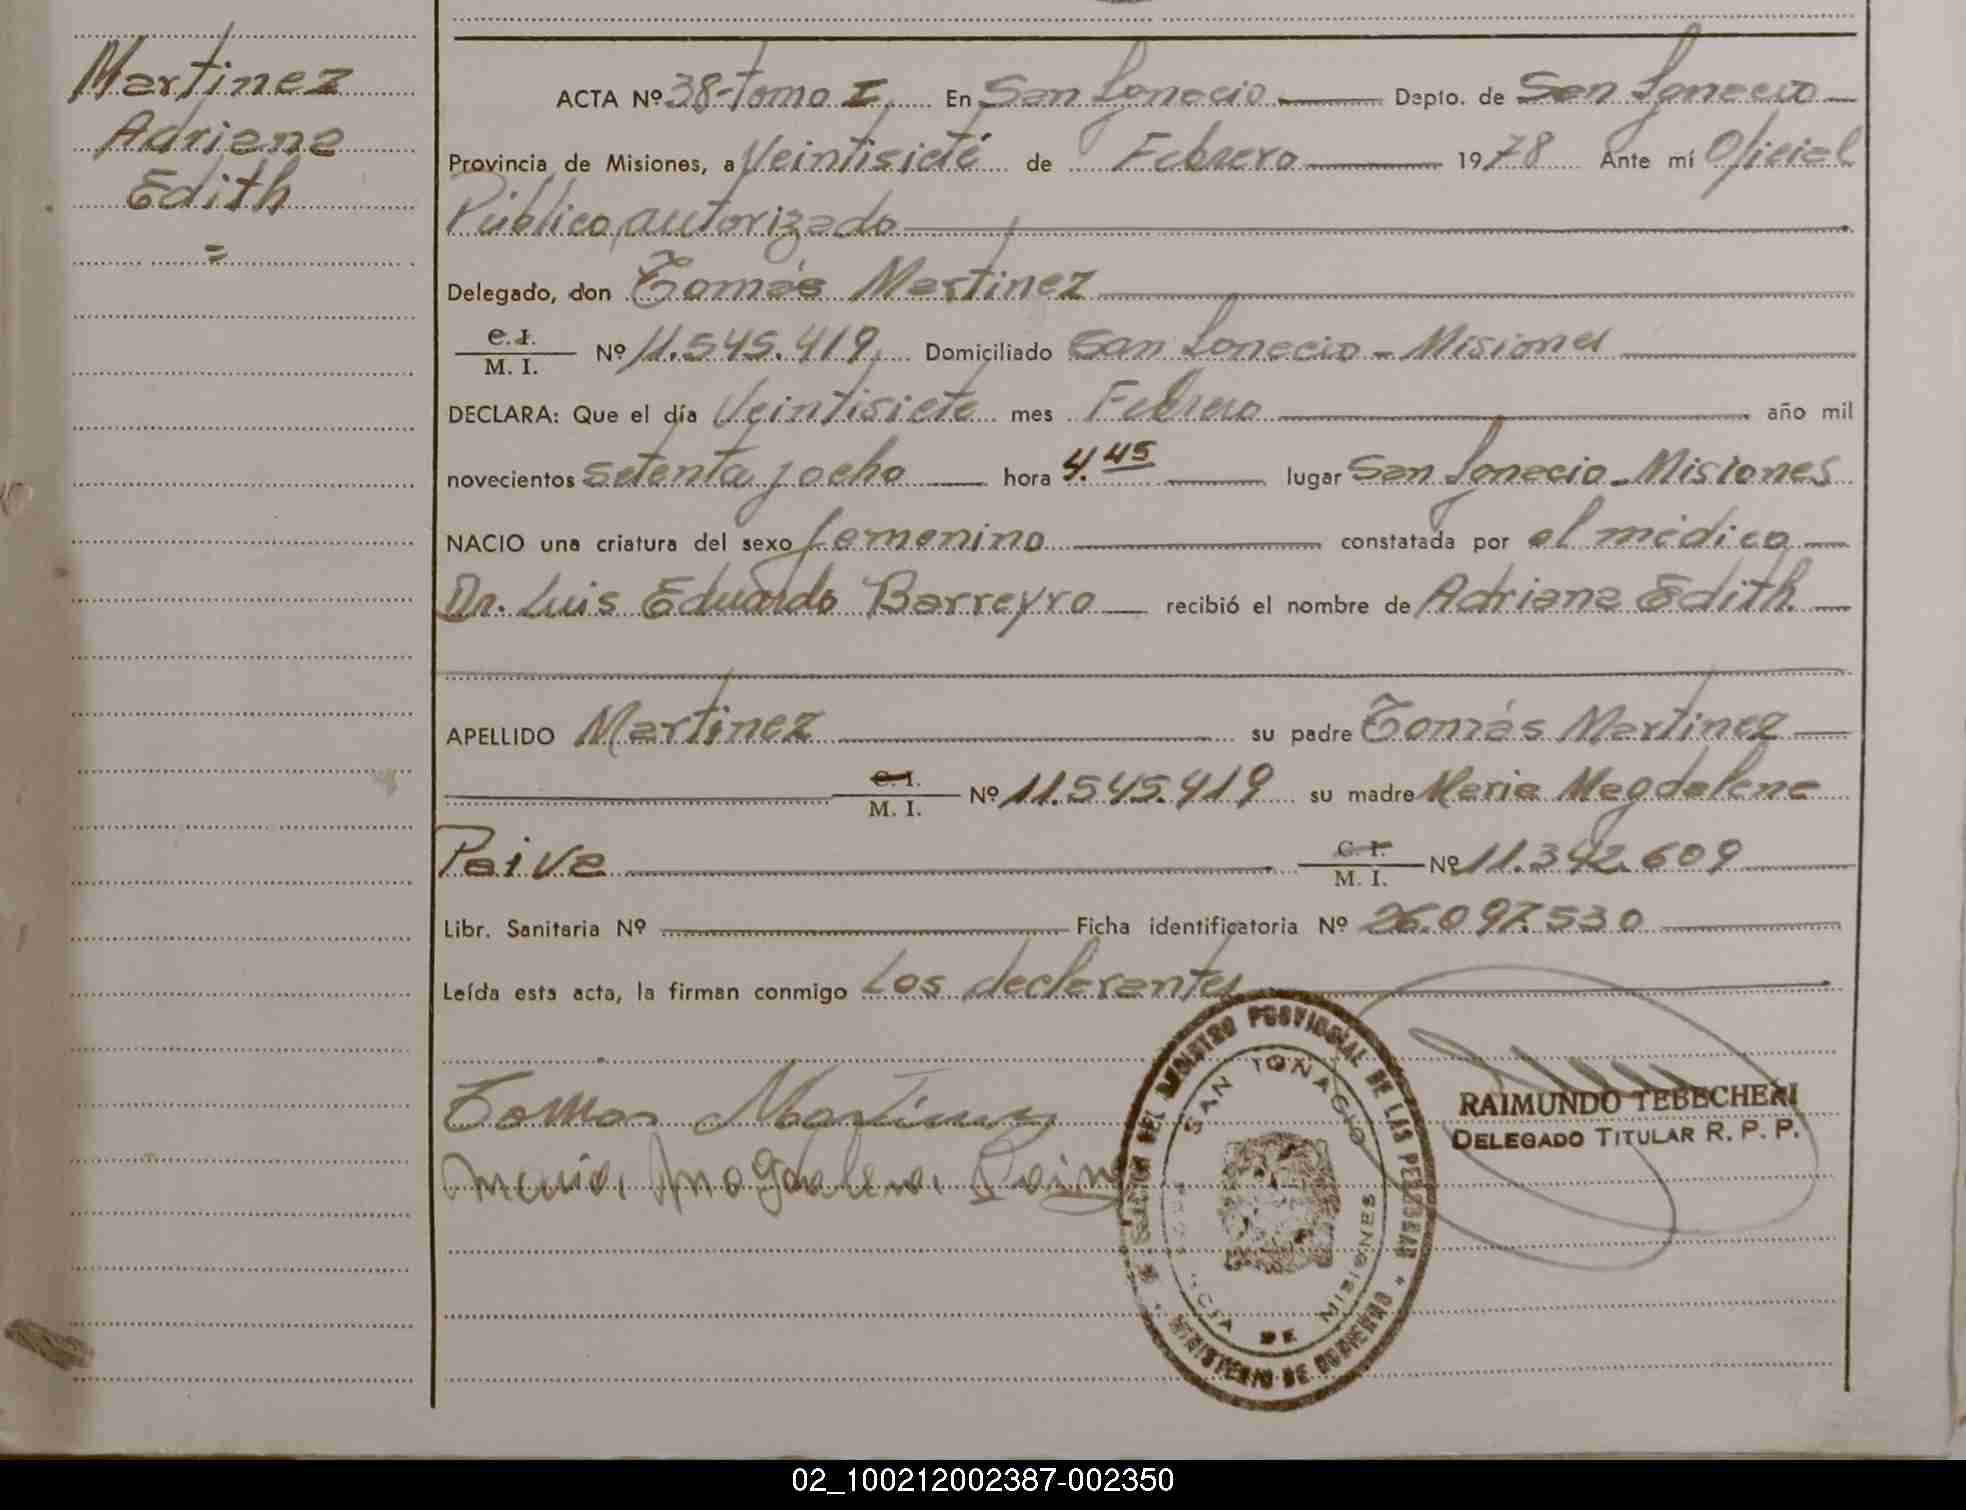 Martinez
Adriana
Edith
=
ACTA Nº 38-Tomo I En San Ignacio Depto. de San Ignacio
Provincia de Misiones, a Veintisiete de Febrero 1978 Ante mí Oficial
Público autorizado
Delegado, don Tomás Martinez
C. I.
M. I. Nº 11.545.419 Domiciliado San Ignacio - Misiones
DECLARA: Que el día Veintisiete mes Febrero año mil
novecientos setenta y ocho hora 4.45 lugar San Ignacio - Misiones
NACIO una criatura del sexo femenino constatada por el médico
Dr. Luis Eduardo Barreyro recibió el nombre de Adriana Edith
APELLIDO Martinez su padre Tomás Martinez
C. I.
M. I. Nº 11.545.419 su madre Maria Magdalena
Paiva C. I.
M. I. Nº 11.342.609
Libr. Sanitaria Nº Ficha identificatoria Nº 26.097.530
Leída esta acta, la firman conmigo Los declarantes
Tomas Martinez
Maria Magdalena Paiva
RAIMUNDO TEBECHERI
DELEGADO TITULAR R. P. P.
DEL REGISTRO PROVINCIAL DE LAS PERSONAS
SAN IGNACIO
MISIONES
DE
MINISTERIO DE GOBIERNO
02_100212002387-002350